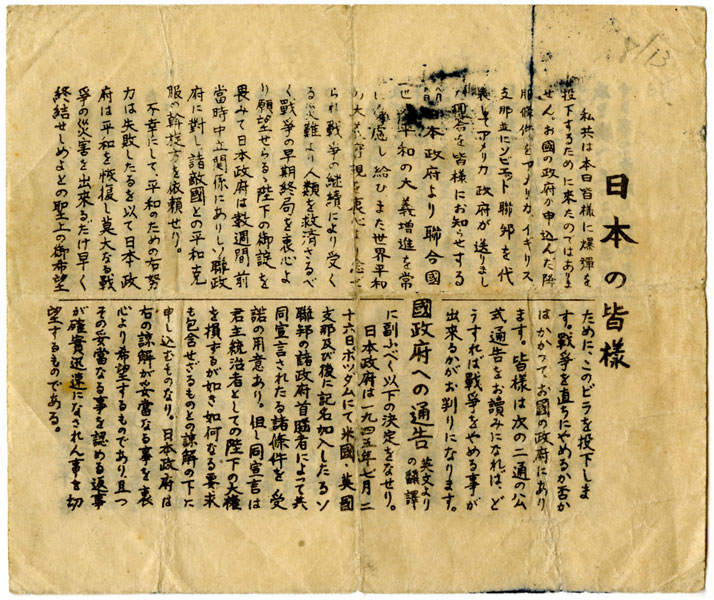 8/13
日本の皆様
私共は本日皆様に爆弾を
投下するために来たのではありま
せん。お國の政府が申込んだ降
服條件をアメリカ、イギリス、
支那並にソビエット聯邦を代
表してアメリカ政府が送りまし
を皆様にお知らせする
ために、このビラを投下しま
す。戦争を直ちにやめるか否か
はかかってお國の政府にあり
ます。皆様は次の二通の公
式通告をお讀みになれば、ど
うすれば戦争をやめる事が
出来るかがお判りになります。
日本政府より聯合國
國政府への通告 英文より
の飜譯
平和の大義増進を常
慮し給ひまた世界平和
現を衷心
られ戦争の継續により受く
る災難より人類を救済さるべ
く戦争の早期終局を衷心よ
り願望せらるゝ陛下の御諚を
畏みて日本政府は数週間前
當時中立関係にありしソ聯政
府に對し諸敵國との平和克
服の斡旋方を依頼せり。
不幸にして、平和のための右努
力は失敗したるを以て日本政
府は平和を恢復し莫大なる戦
争の災害を出来るだけ早く
終結せしめよとの聖上の御希望
に副ふべく以下の決定をなせり。
日本政府は一九四五年七月二
十六日、ポツダムにて米國・英國
支那及び後に記名加入したるソ
聯邦の諸政府首脳者によって共
同宣言されたる諸條件を受
諾の用意あり。但し同宣言は
君主統治者としての陛下の大權
を損するが如き如何なる要求
も包含せざるものとの諒解の下に
申し込むものなり。日本政府は
右の諒解が妥當なる事を衷
心より希望するものであり、且つ
その妥當なる事を認める返事
が確實迅速になされん事を切
望するものである。